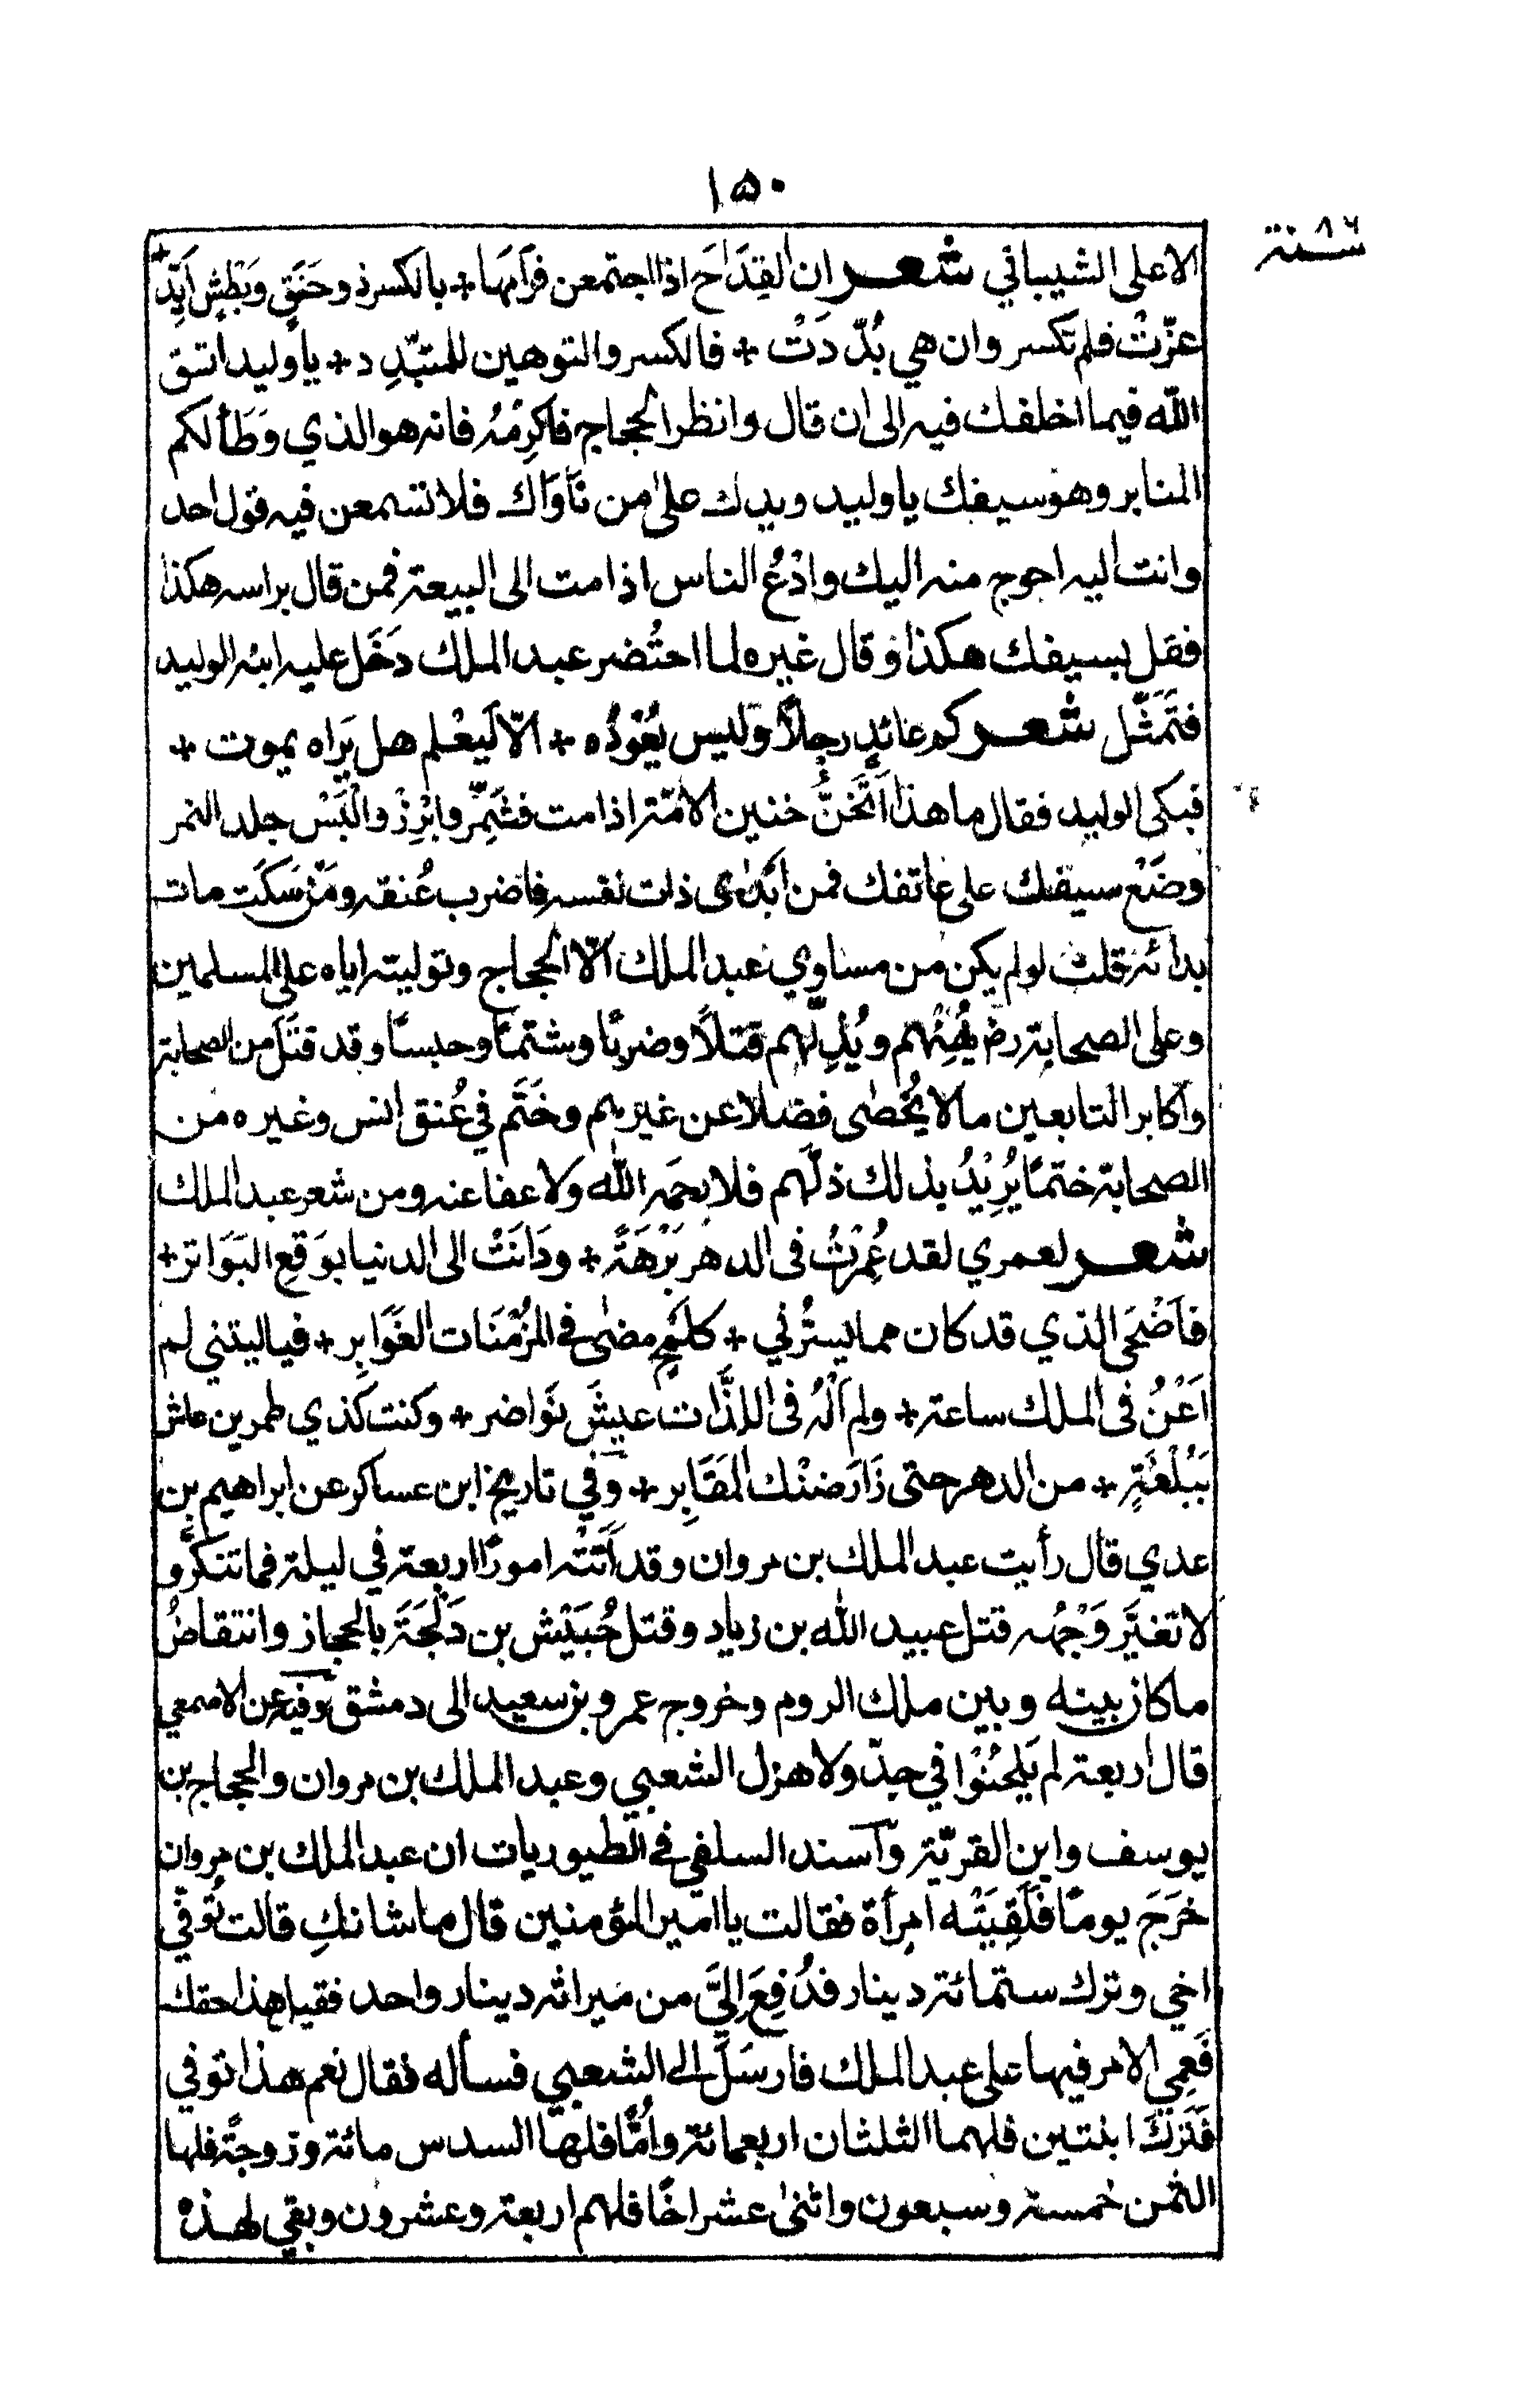 ١٥٠
سنة ٨٦
الاعلى الشيباني شعر ان القِدَاحَ اذا اجتمعن فرَامَهَا + بالكسر ذو حَنَقٍ وبَطْشٍ اَيِّدٍ +
عزّتْ فلم تكسر وان هي بُدّدَتْ + فالكسر والتوهين للمتبّدِد + يا وليد اتق
الله فيما اخلفك فيه الى ان قال وانظر الحجاج فاكرِمْهُ فانه هو الذي وَطَألكم
المنابر وهو سيفك يا وليد ويدك على من نَاوَاك فلا تسمعن فيه قول احد
وانت اليه احوج منه اليك وادْعُ الناس اذا مت الى البيعة فمن قال براسه هكذا
فقل بسيفك هكذا وقال غيره لما احتُضر عبد الملك دَخَل عليه ابنه الوليد
فتَمَثّل شعر كم عائدٍ رجلاً وليس يَعُوْدُه + الّا لَيعْلم هل يَراه يموت +
فبكى الوليد فقال ما هذا اَتَحَنُّ حنين الامَة اذا مت فشَمِّر وابْرِزْ والْبَسْ جلد النمر
وضَعْ سيفك على عاتقك فمن اَبْدَى ذات نفسه فاضرب عُنقه ومَنْ سَكَت مات
بدائه قلت لو لم يكن من مساوي عبد الملك الّا الحجاج وتوليته اياه على المسلمين
وعلى الصحابة رض يُهِيْنُهم ويُذِلّهم قتلاً وضربًا وشتمًا وحبسًا وقد قتَلَ من الصحابة
واكابر التابعين ما لا يُحْصٰى فضلا عن غيرهم وخَتَم في عُنق انس وغيره من
الصحابة ختمًا يُرِيْدُ بذلك ذلّهم فلا رحمه الله ولا عفا عنه ومن شعر عبد الملك
شعر لعمري لقد عُمِّرْتُ في الدهر بَرْهَةً + ودَانَتْ الى الدنيا بوَقعِ البَوَاتر +
فاَضْحَى الذي قد كان مما يسرُّني + كلمْحٍ مضى في المزْمِنَات الغَوَابِر + فيا ليتني لم
اَعْنُ في الملك ساعة + ولم اَلْهُ في اللذَّات عيشَ نَوَاضر + وكنت كذي طمرين عاش
بَبُلْغَةٍ + من الدهر حتى زَارَ ضَنْك المَقَابِر + وفي تاريخ ابن عساكر عن ابراهيم بن
عدي قال رأيت عبد الملك بن مروان وقد اَتَتْه امورًا اربعة في ليلة فما تنكّر و
لا تغيَّر وَجْهُه قتل عبيد الله بن زياد وقتل حُبَيْش بن دَلْجَةَ بالحجاز وانتقاضُ
ما كان بينه وبين ملك الروم وخروج عمرو بن سعيد الى دمشق وفيه عن الاصمعي
قال اربعة لم يَلْحَنُوْا في جدّ ولا هزل الشعبي وعبد الملك بن مروان والحجاج بن
يوسف وابن القريّة وآسند السلفي في الطيوريات ان عبد الملك بن مروان
خرَجَ يومًا فَلَقِيَتْه امرأة فقالت يا امير المؤمنين قال ما شانكِ قالت تُوفّي
اخي وترك ستمائة دينار فدُفِعَ اِليَّ من ميراثه دينار واحد فقيل هذا حقك
فَعمِي الامر فيها على عبد الملك فارسَلَ الى الشعبي فسأله فقال نعم هذا توفي
فَتَرَكَ ابنتين فلهما الثلثان اربعمائة واُمًّا فلها السدس مائة وزوجةً فلها
الثمن خمسة وسبعون واثنى عشر اخًا فلهم اربعة وعشرون وبقي لهذه